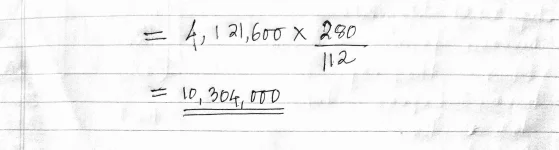 = 4,121,600 × 280/112
= 10,304,000